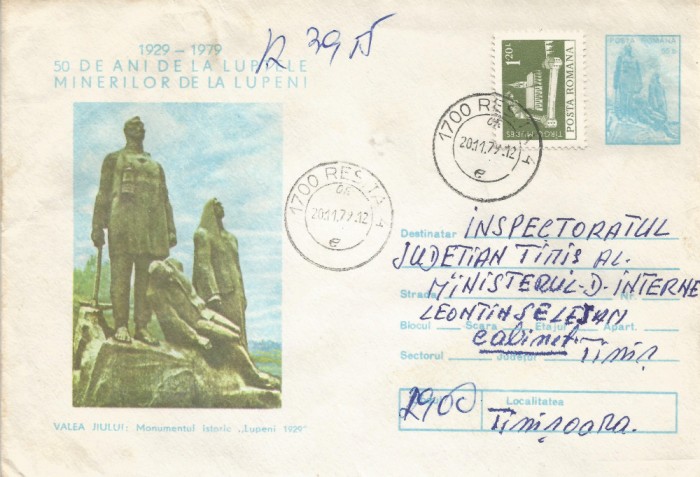 1929 – 1979
50 DE ANI DE LA LUPTELE
MINERILOR DE LA LUPENI
R 395
1,20L
POSTA ROMANA
TIRGU MUREȘ
POSTA ROMANA
1700 REȘIȚA 4
20.11.79.12
e
1700 REȘIȚA 4
20.11.79.12
e
Destinatar INSPECTORATUL
JUDEȚIAN TIMIS AL.
MINISTERUL-D-INTERNE
Strada Nr.
LEONTIN SELEJAN
Blocul Scara Etajul Apart.
Cabinet
Sectorul Județul Timiș
2900
Localitatea
Timișoara.
VALEA JIULUI: Monumentul istoric „Lupeni 1929"